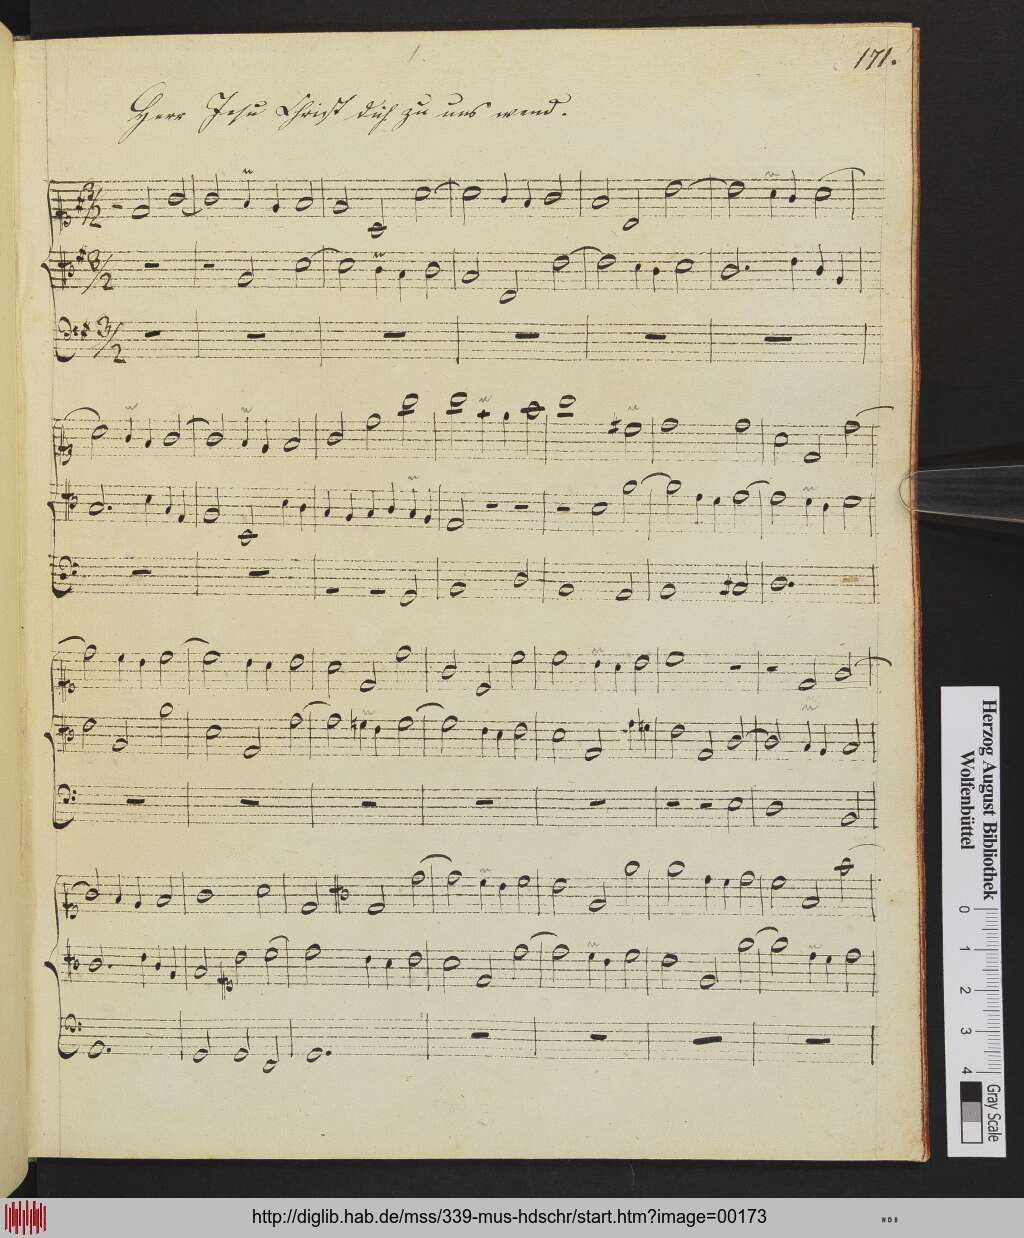 1.
171.
Herr Jesu Christ dich zu uns wend.
3/2
3/2
3/2
Herzog August Bibliothek
Wolfenbüttel
0 1 2 3 4
Gray Scale
http://diglib.hab.de/mss/339-mus-hdschr/start.htm?image=00173